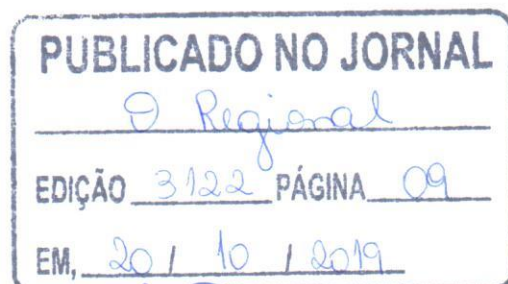 PUBLICADO NO JORNAL
O Regional
EDIÇÃO 3122 PÁGINA 09
EM, 20 / 10 / 2019